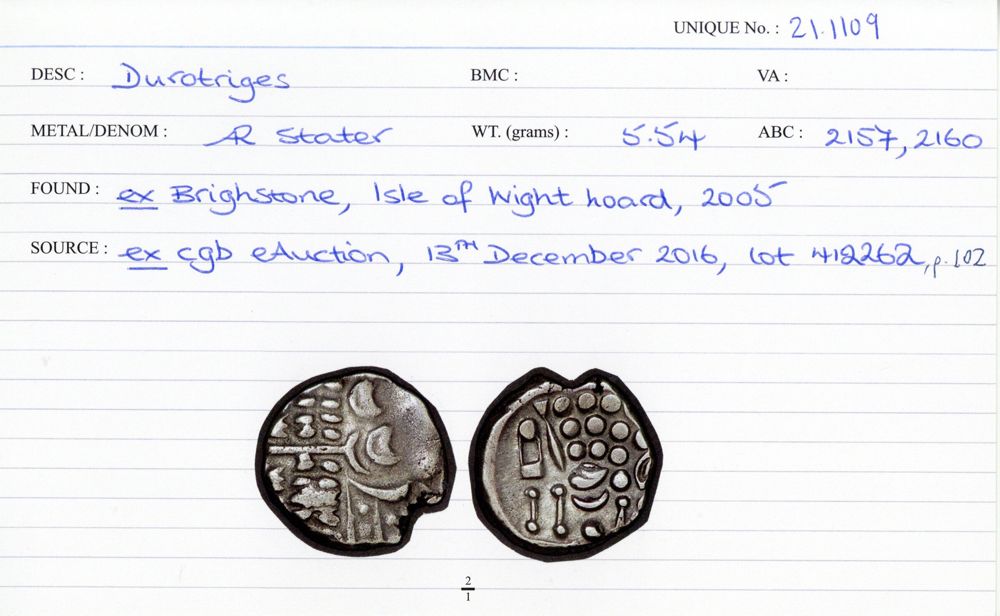 UNIQUE No. : 21.1109
DESC : Durotriges BMC : VA :
METAL/DENOM : AR Stater WT. (grams) : 5.54 ABC : 2157, 2160
FOUND : ex Brighstone, Isle of Wight hoard, 2005
SOURCE : ex cgb eAuction, 13TH December 2016, lot 412262, p. 102
2
1